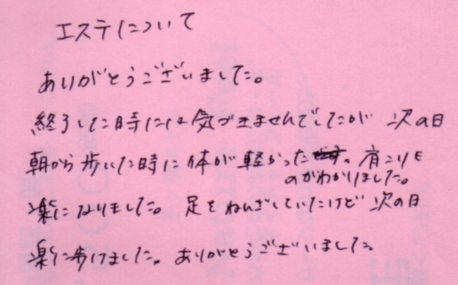 エステについて
ありがとうございました。
終了した時には気づきませんでしたが 次の日
朝から歩いた時に体が軽かった。肩こりも
のがわかりました。
楽になりました。足をねんざしていたけど 次の日
楽に歩けました。ありがとうございました。